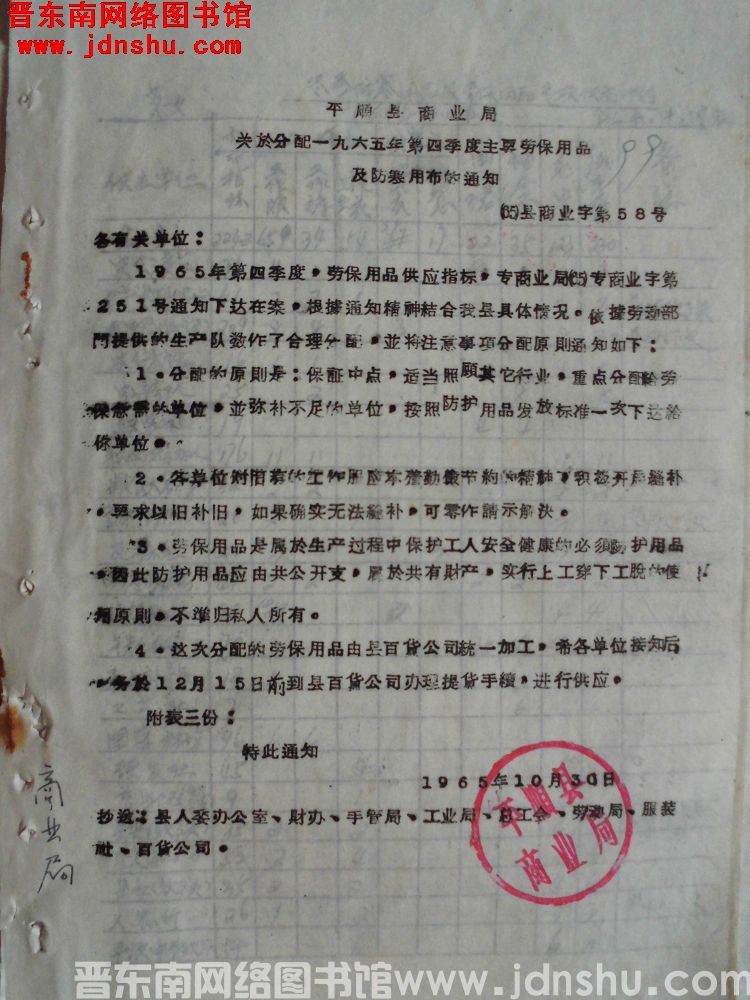 晋东南网络图书馆
www.jdnshu.com
平顺县商业局
关於分配一九六五年第四季度主要劳保用品
99
及防寒用布的通知
(65)县商业字第58号
各有关单位：
1965年第四季度，劳保用品供应指标，专商业局(65)专商业字第
251号通知下达在案，根據通知精神结合我县具体情况，依據劳动部
門提供的生产队数作了合理分配，並将注意事项分配原則通知如下：
1、分配的原则是：保証中点，适当照顾其它行业，重点分配給劳
保急需的单位，並弥补不足的单位，按照防护用品发放标准一次下达給
你单位。
2、各单位对旧有的工作服应本着勤儉节約的精神，积极开展縫补
，要求以旧补旧，如果确实无法縫补，可零作請示解决。
3、劳保用品是属於生产过程中保护工人安全健康的必须防护用品
，因此防护用品应由共公开支，属於共有財产，实行上工穿下工脫的使
用原則，不準归私人所有。
4、这次分配的劳保用品由县百貨公司統一加工，希各单位接知后
，务於12月15日前到县百貨公司办理提货手續，进行供应。
附表三份：
特此通知
1965年10月30日
抄送：县人委办公室、財办、手管局、工业局、总工会、劳动局、服装
社、百貨公司。
平顺县
商业局
商业局
晋东南网络图书馆www.jdnshu.com